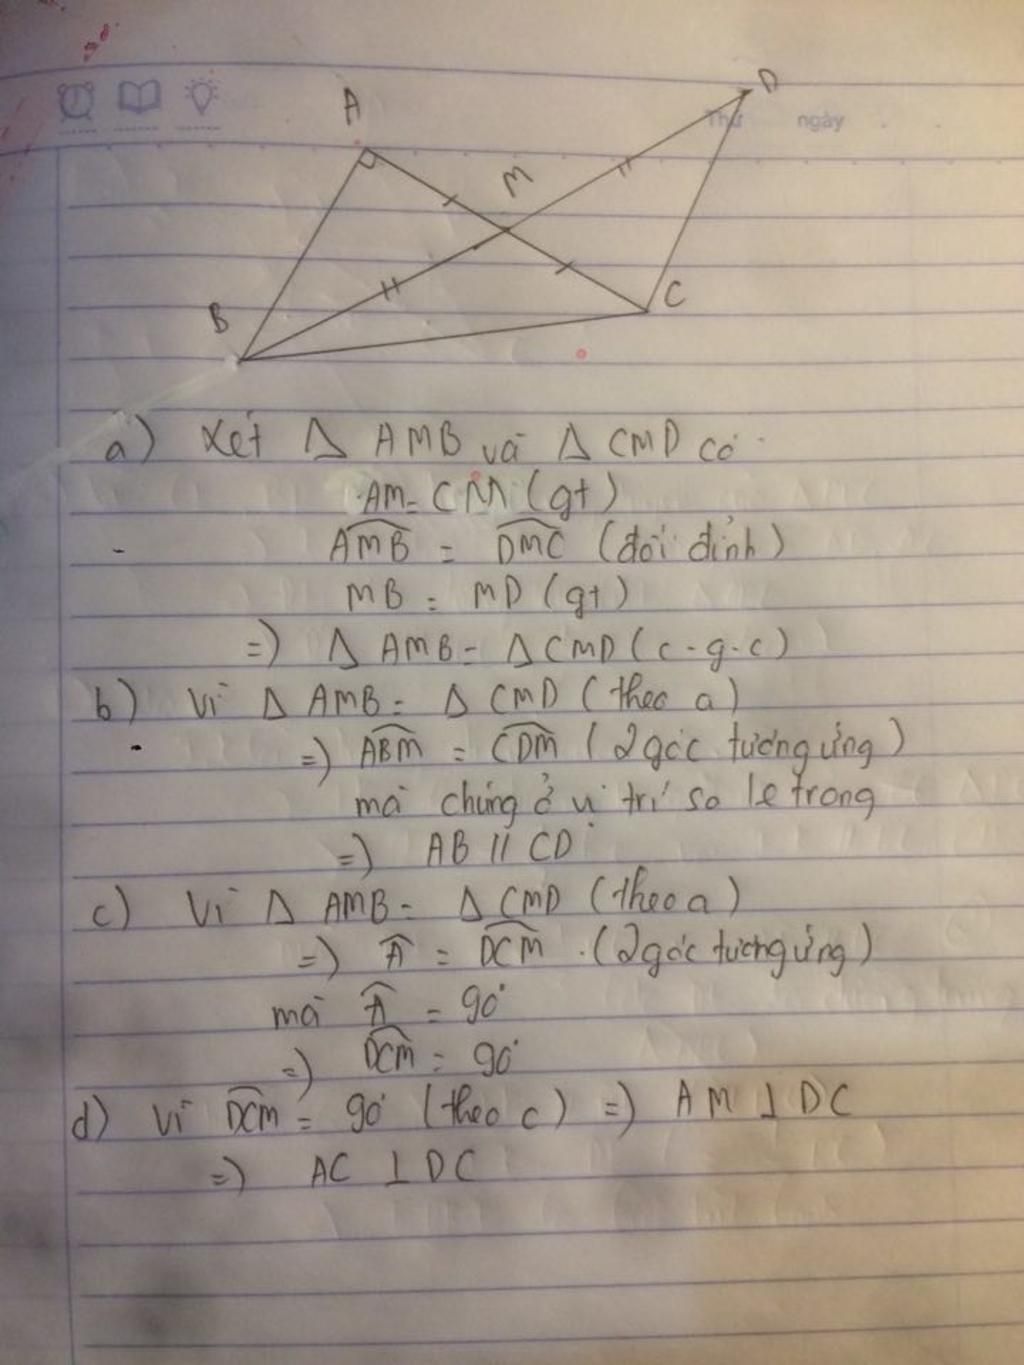 Thứ ngày
A
D
M
B
C
a) Xét Δ AMB và Δ CMD có
AM = CM (gt)
AMB = DMC (đối đỉnh)
MB = MD (gt)
=) Δ AMB = Δ CMD (c-g-c)
b) Vì Δ AMB = Δ CMD (theo a)
=) ABM = CDM (2 góc tương ứng)
mà chúng ở vị trí so le trong
=) AB // CD
c) Vì Δ AMB = Δ CMD (theo a)
=) A = DCM (2 góc tương ứng)
mà A = 90°
=) DCM = 90°
d) Vì DCM = 90° (theo c) =) AM ⊥ DC
=) AC ⊥ DC